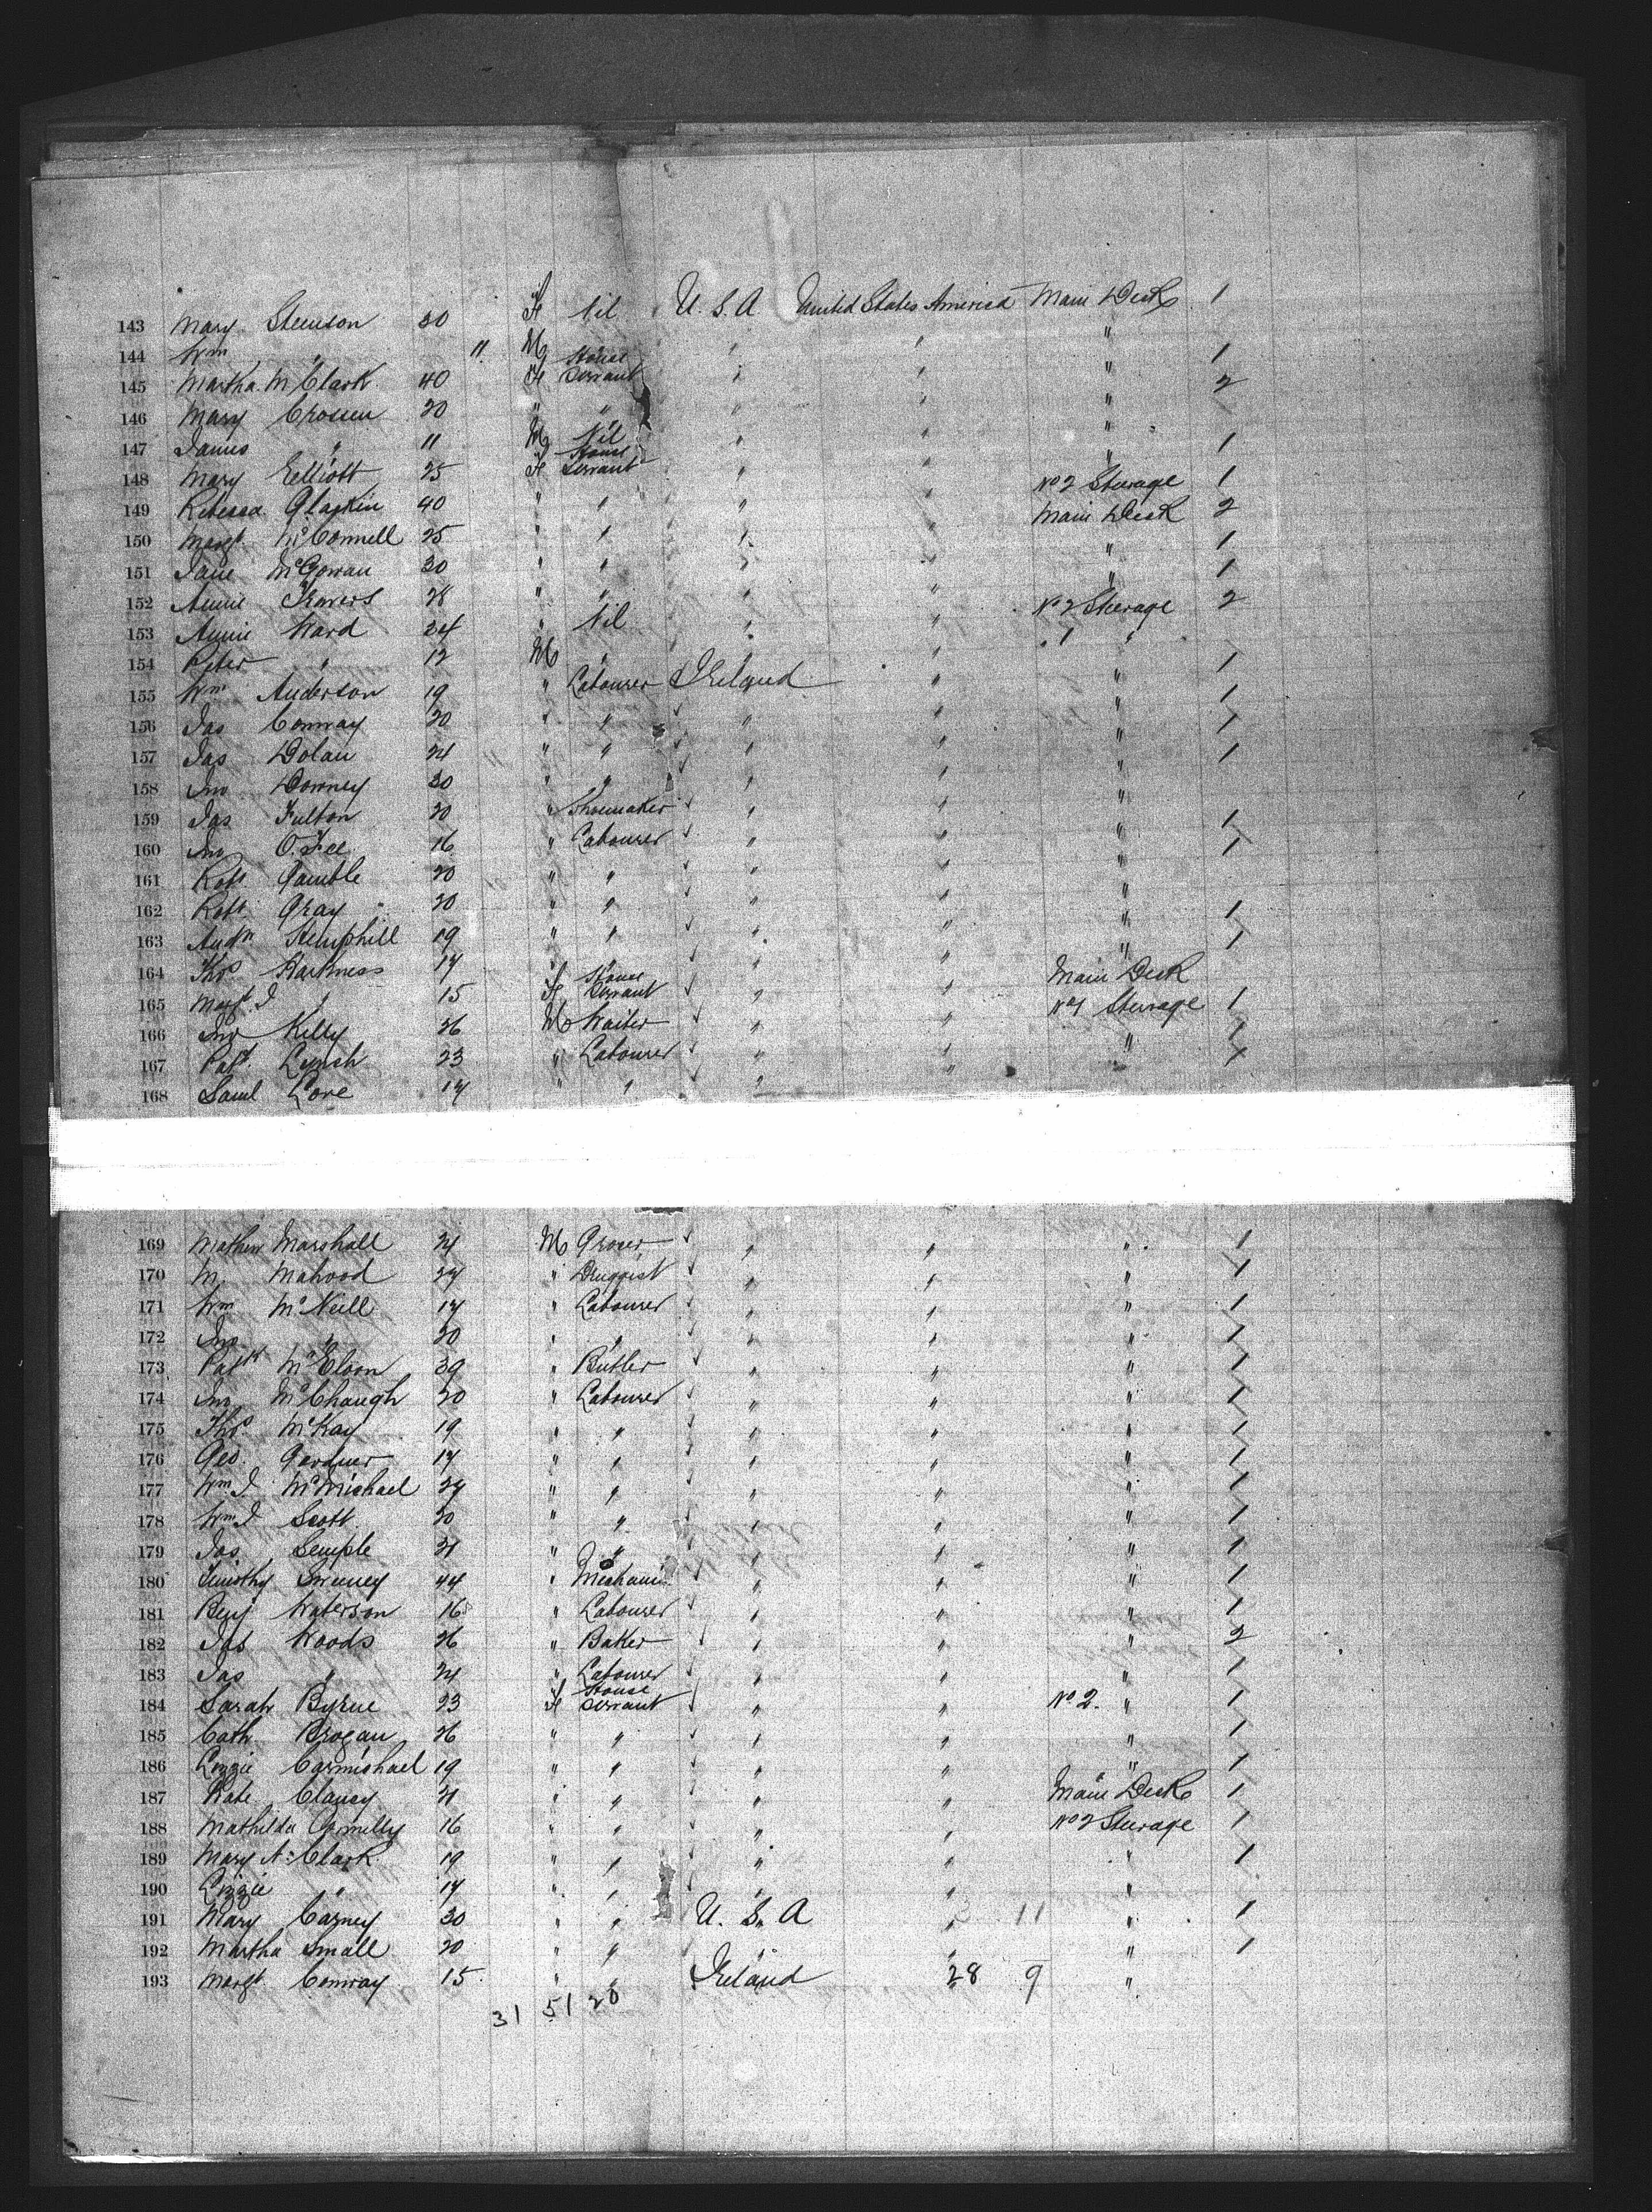 143 Mary Steenson 30 F Nil U.S.A United States America Main Deck 1
144 Wm " 11 M " " "
145 Martha McClark 40 F House Servant " " " 1
146 Mary Crossen 20 " " " " " 2
147 James " 11 M Nil " " "
148 Mary Elliott 25 F House Servant " " " 1
149 Rebecca Glaskin 40 " " " " No 2 Steerage 1
150 Margt McConnell 25 " " " " Main Deck 2
151 Jane McGowan 30 " " " " " 1
152 Annie Travers 28 " " " " " 1
153 Annie Ward 24 " Nil " " No 2 Steerage 2
154 Peter " 12 M " " " " 1 "
155 Wm Anderson 19 " Labourer Ireland " " 1
156 Jas Conway 20 " " " " " 1
157 Jas Dolan 24 " " " " " 1
158 Jno Downey 30 " " " " " 1
159 Jas Fulton 20 " Shoemaker " " "
160 Jno O. Fee 16 " Labourer " " " 1
161 Robt Gamble 20 " " " " " 1
162 Robt Gray 20 " " " " "
163 Andw Hemphill 19 " " " " " 1
164 Thos Harkness 17 " " " " " 1
165 Margt J " 15 F House Servant " " Main Deck
166 Jno Kelly 26 M Waiter " " No 1 Steerage 1
167 Patt Lynch 23 " Labourer " " " 1
168 Saml Love 17 " " " " " 1
169 Mathew Marshall 24 M Grocer " " " 1
170 M. Mahood 27 " Druggist " " " 1
171 Wm McNeill 17 " Labourer " " " 1
172 Jno " 20 " " " " " 1
173 Patk McEloon 39 " Butler " " " 1
174 Jno McChaugh 20 " Labourer " " " 1
175 Thos McKay 19 " " " " " 1
176 Geo. Gardner 17 " " " " " 1
177 Wm J McMichael 27 " " " " " 1
178 Wm J Scott 20 " " " " " 1
179 Jas Semple 21 " " " " " 1
180 Timothy Sweeney 44 " Mechanic " " " 1
181 Benj Waterson 16 " Labourer " " " 1
182 Jas Woods 26 " Baker " " " 2
183 Jas " 24 " Labourer " " " 1
184 Sarah Byrne 23 F House Servant " " No 2. " 1
185 Cath Brogan 26 " " " " " 1
186 Lizzie Carmichael 19 " " " " " 1
187 Kate Clancy 21 " " " " Main Deck 1
188 Mathilda Connelly 16 " " " " No 2 Steerage 1
189 Mary A. Clark 19 " " " " " 1
190 Lizzie " 17 " " " " "
191 Mary Carney 30 " " U.S.A " 11 " 1
192 Martha Small 20 " " " " " 1
193 Margt Conway 15 " " Ireland 28 9 "
31 51 20